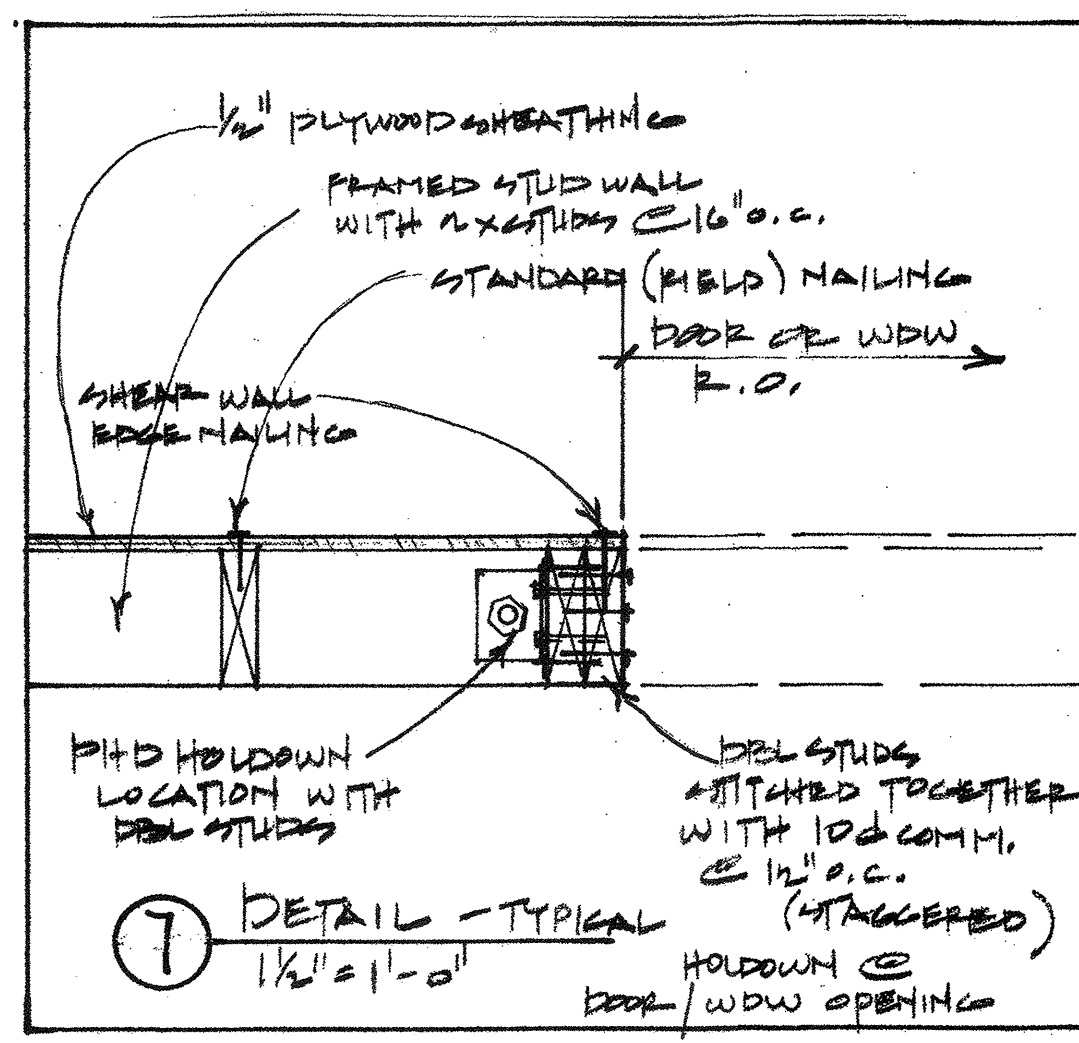 1/2" PLYWOOD SHEATHING
FRAMED STUD WALL
WITH 2X STUDS @ 16" O.C.
STANDARD (FIELD) NAILING
DOOR OR WDW
R.O.
SHEAR WALL
EDGE NAILING
PHD HOLDOWN
LOCATION WITH
DBL STUDS
DBL STUDS
STITCHED TOGETHER
WITH 10d COMM.
@ 12" O.C.
(STAGGERED)
7
DETAIL - TYPICAL
1 1/2" = 1'-0"
HOLDOWN @
DOOR/WDW OPENING